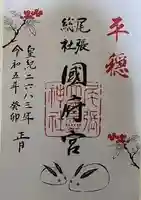 平穏
尾張
総社
國府宮
皇紀二六八三年
令和五年癸卯
正月